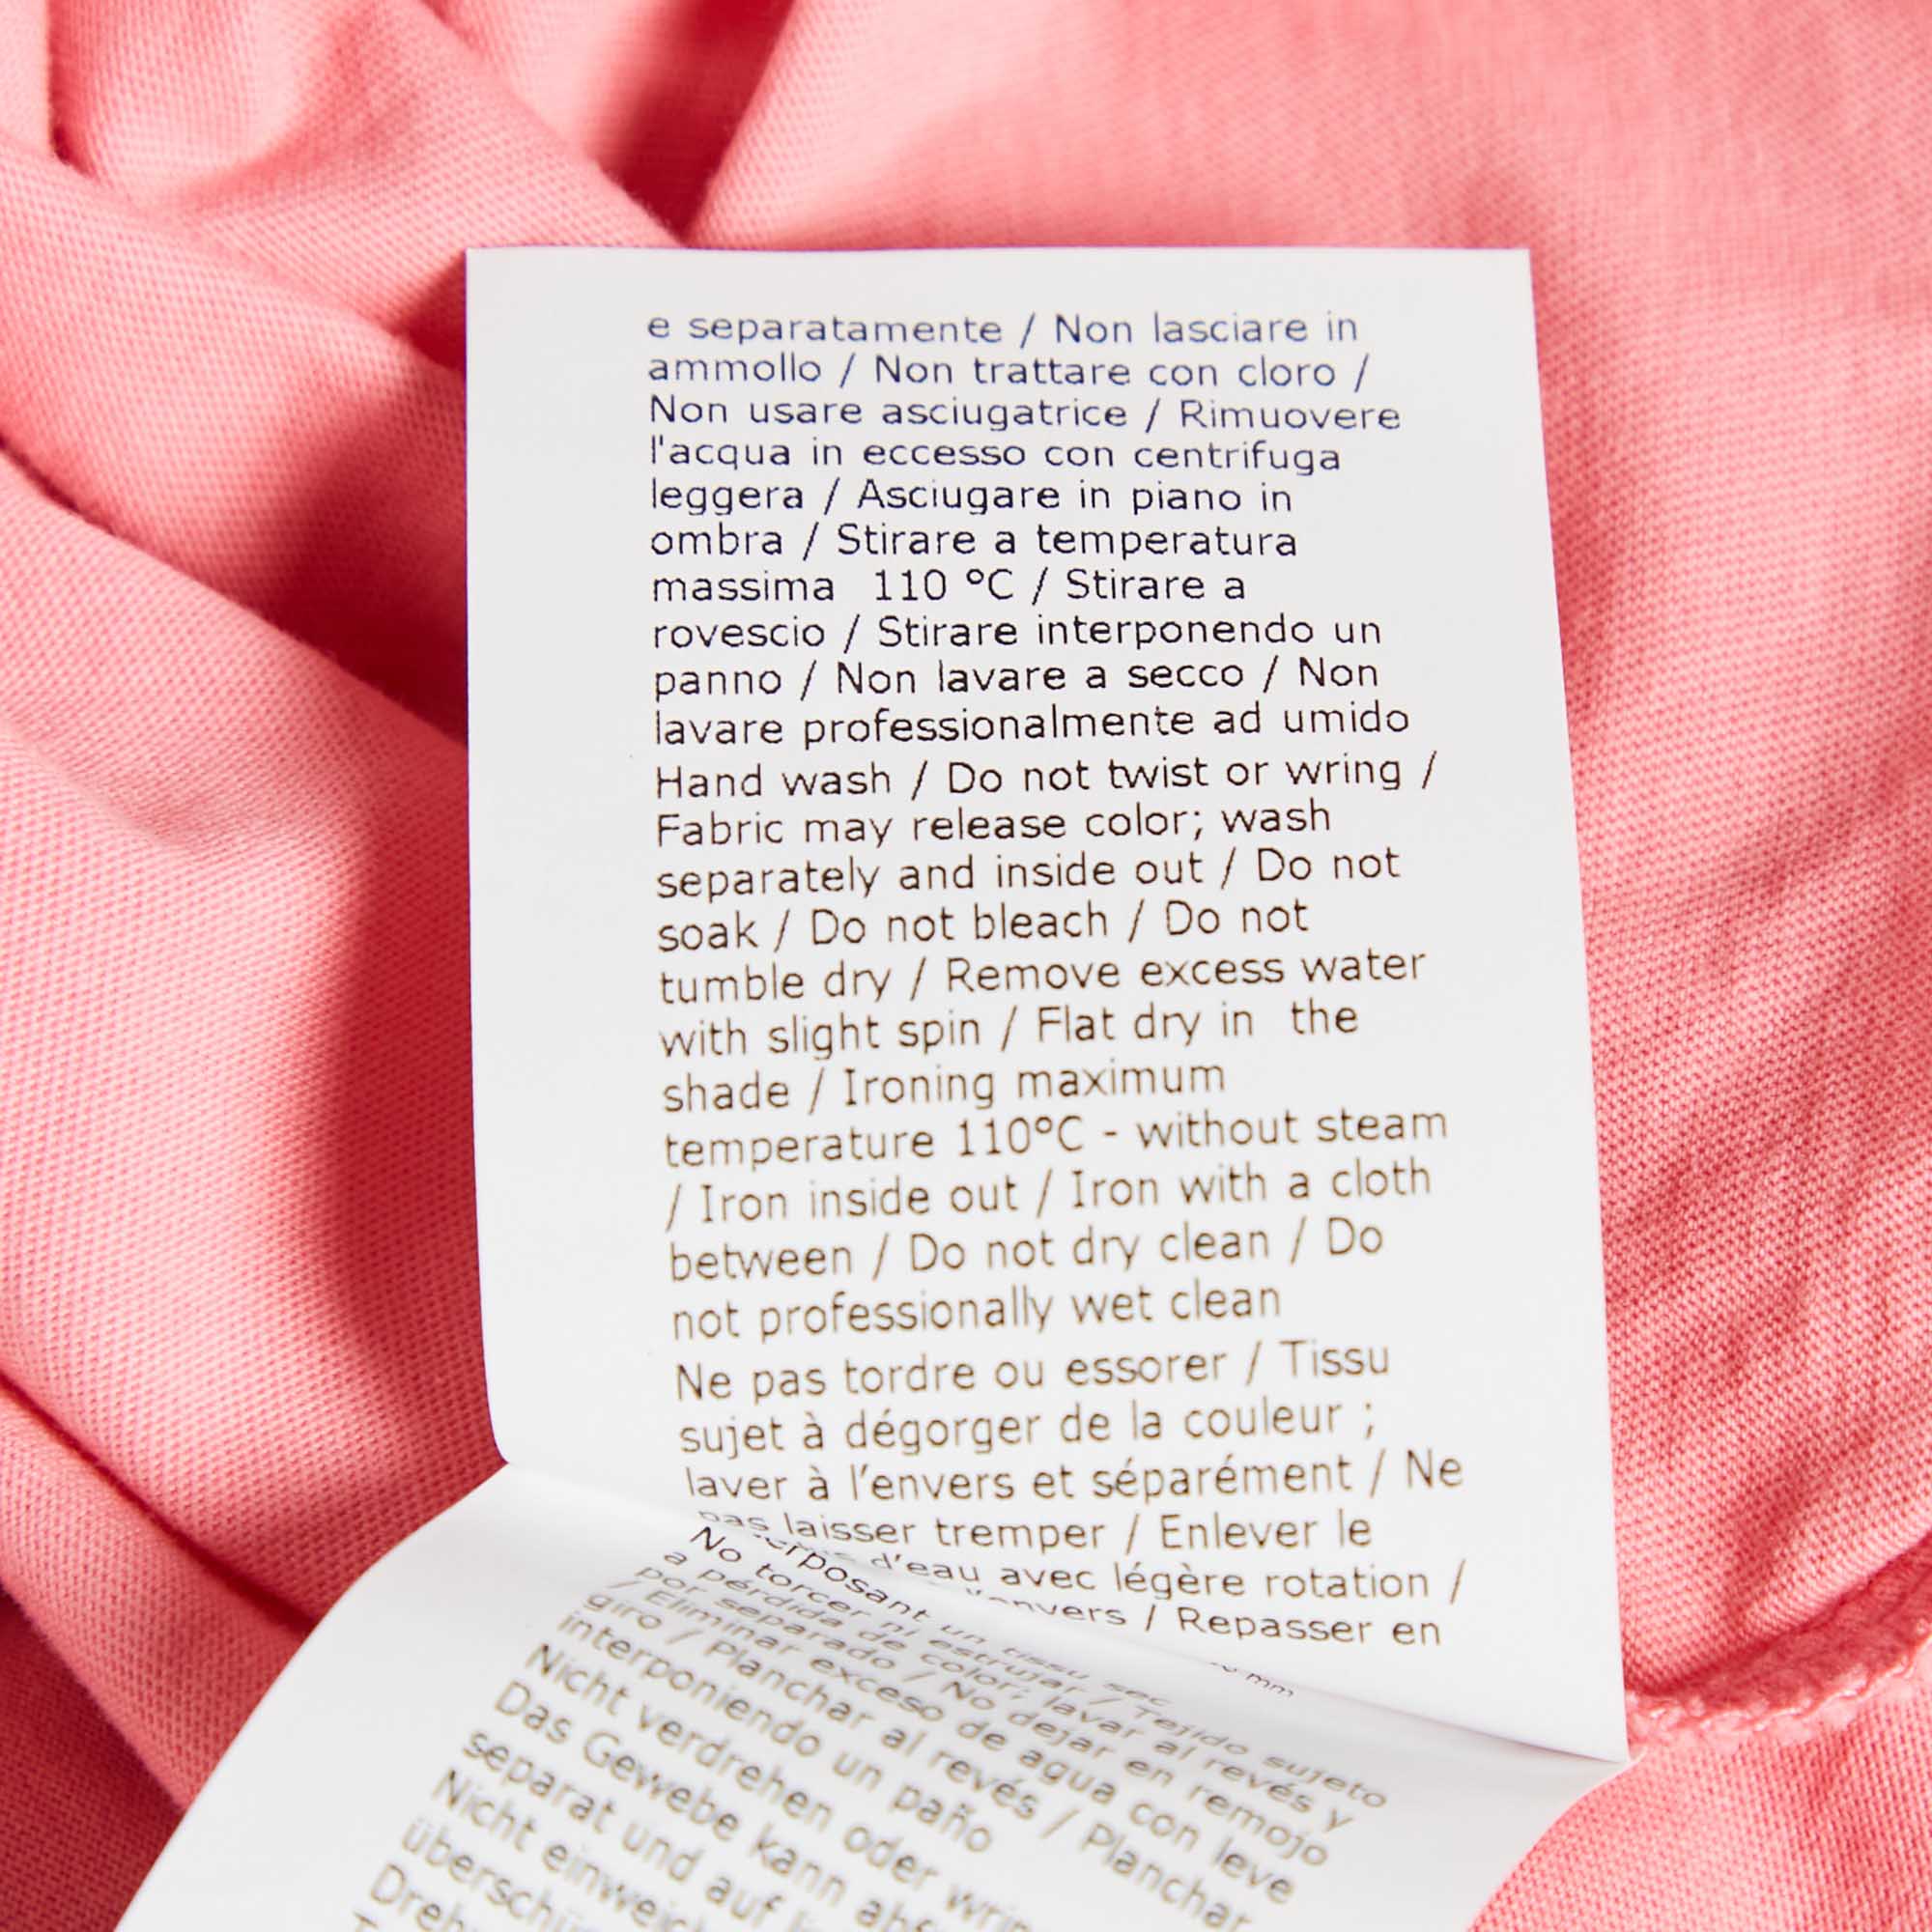 e separatamente / Non lasciare in
ammollo / Non trattare con cloro /
Non usare asciugatrice / Rimuovere
l'acqua in eccesso con centrifuga
leggera / Asciugare in piano in
ombra / Stirare a temperatura
massima  110 °C / Stirare a
rovescio / Stirare interponendo un
panno / Non lavare a secco / Non
lavare professionalmente ad umido
Hand wash / Do not twist or wring /
Fabric may release color; wash
separately and inside out / Do not
soak / Do not bleach / Do not
tumble dry / Remove excess water
with slight spin / Flat dry in  the
shade / Ironing maximum
temperature 110°C - without steam
/ Iron inside out / Iron with a cloth
between / Do not dry clean / Do
not professionally wet clean
Ne pas tordre ou essorer / Tissu
sujet à dégorger de la couleur ;
laver à l’envers et séparément / Ne
pas laisser tremper / Enlever le
d’eau avec légère rotation /
l’envers / Repasser en
un tissu sec
No torcer ni estrujar / Tejido sujeto
a pérdida de color; lavar al revés y
por separado / No dejar en remojo
/ Eliminar exceso de agua con leve
giro / Planchar al revés / Planchar
interponiendo un paño
Nicht verdrehen oder
Das Gewebe kann
separat und auf
Nicht